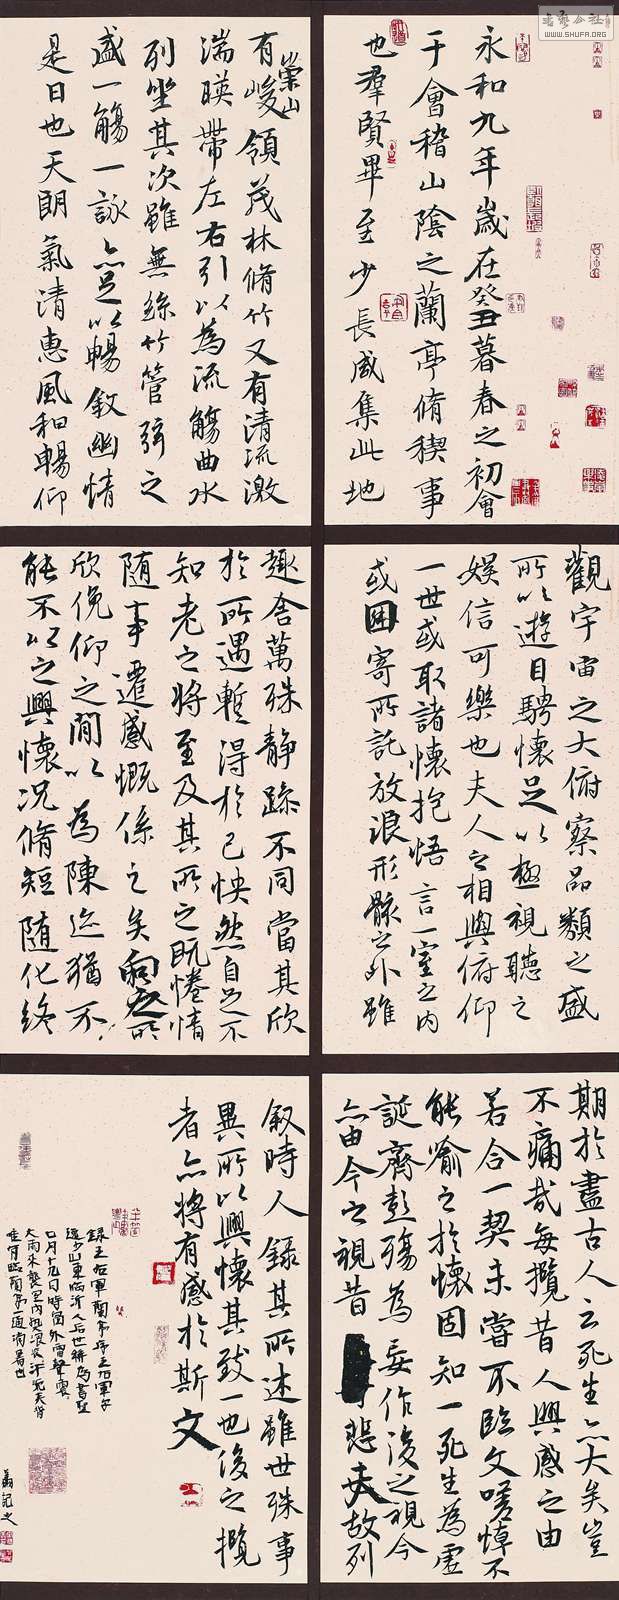 永和九年歲在癸丑暮春之初會
于會稽山陰之蘭亭脩稧事
也羣賢畢至少長咸集此地
有崇山峻領茂林脩竹又有清流激
湍暎帶左右引以為流觴曲水
列坐其次雖無絲竹管弦之
盛一觴一詠亦足以暢敘幽情
是日也天朗氣清惠風和暢仰
觀宇宙之大俯察品類之盛
所以遊目騁懷足以極視聽之
娛信可樂也夫人之相與俯仰
一世或取諸懷抱悟言一室之内
或因寄所託放浪形骸之外雖
趣舍萬殊靜躁不同當其欣
於所遇暫得於己怏然自足不
知老之將至及其所之既惓情
随事遷感慨係之矣向之所
欣俛仰之閒以為陳迹猶不
能不以之興懷況脩短随化終
期於盡古人云死生亦大矣豈
不痛哉每攬昔人興感之由
若合一契未嘗不臨文嗟悼不
能喻之於懷固知一死生為虛
誕齊彭殤為妄作後之視今
亦由今之視昔悲夫故列
敘時人錄其所述雖世殊事
異所以興懷其致一也後之攬
者亦將有感於斯文
錄王右軍蘭亭序王右軍字
逸少山東臨沂人后世稱為書聖
月十九日時窗外雷聲
大雨來襲室内
臨蘭亭一通消暑也
記之
書藝公社
WWW.SHUFA.ORG